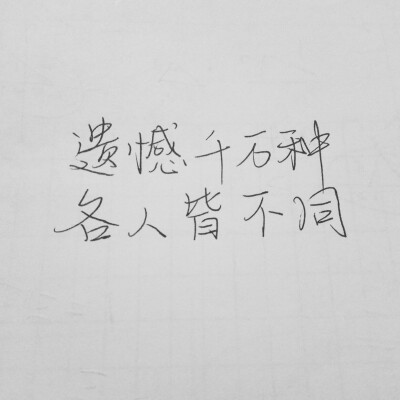 遗憾千万种
各人皆不同